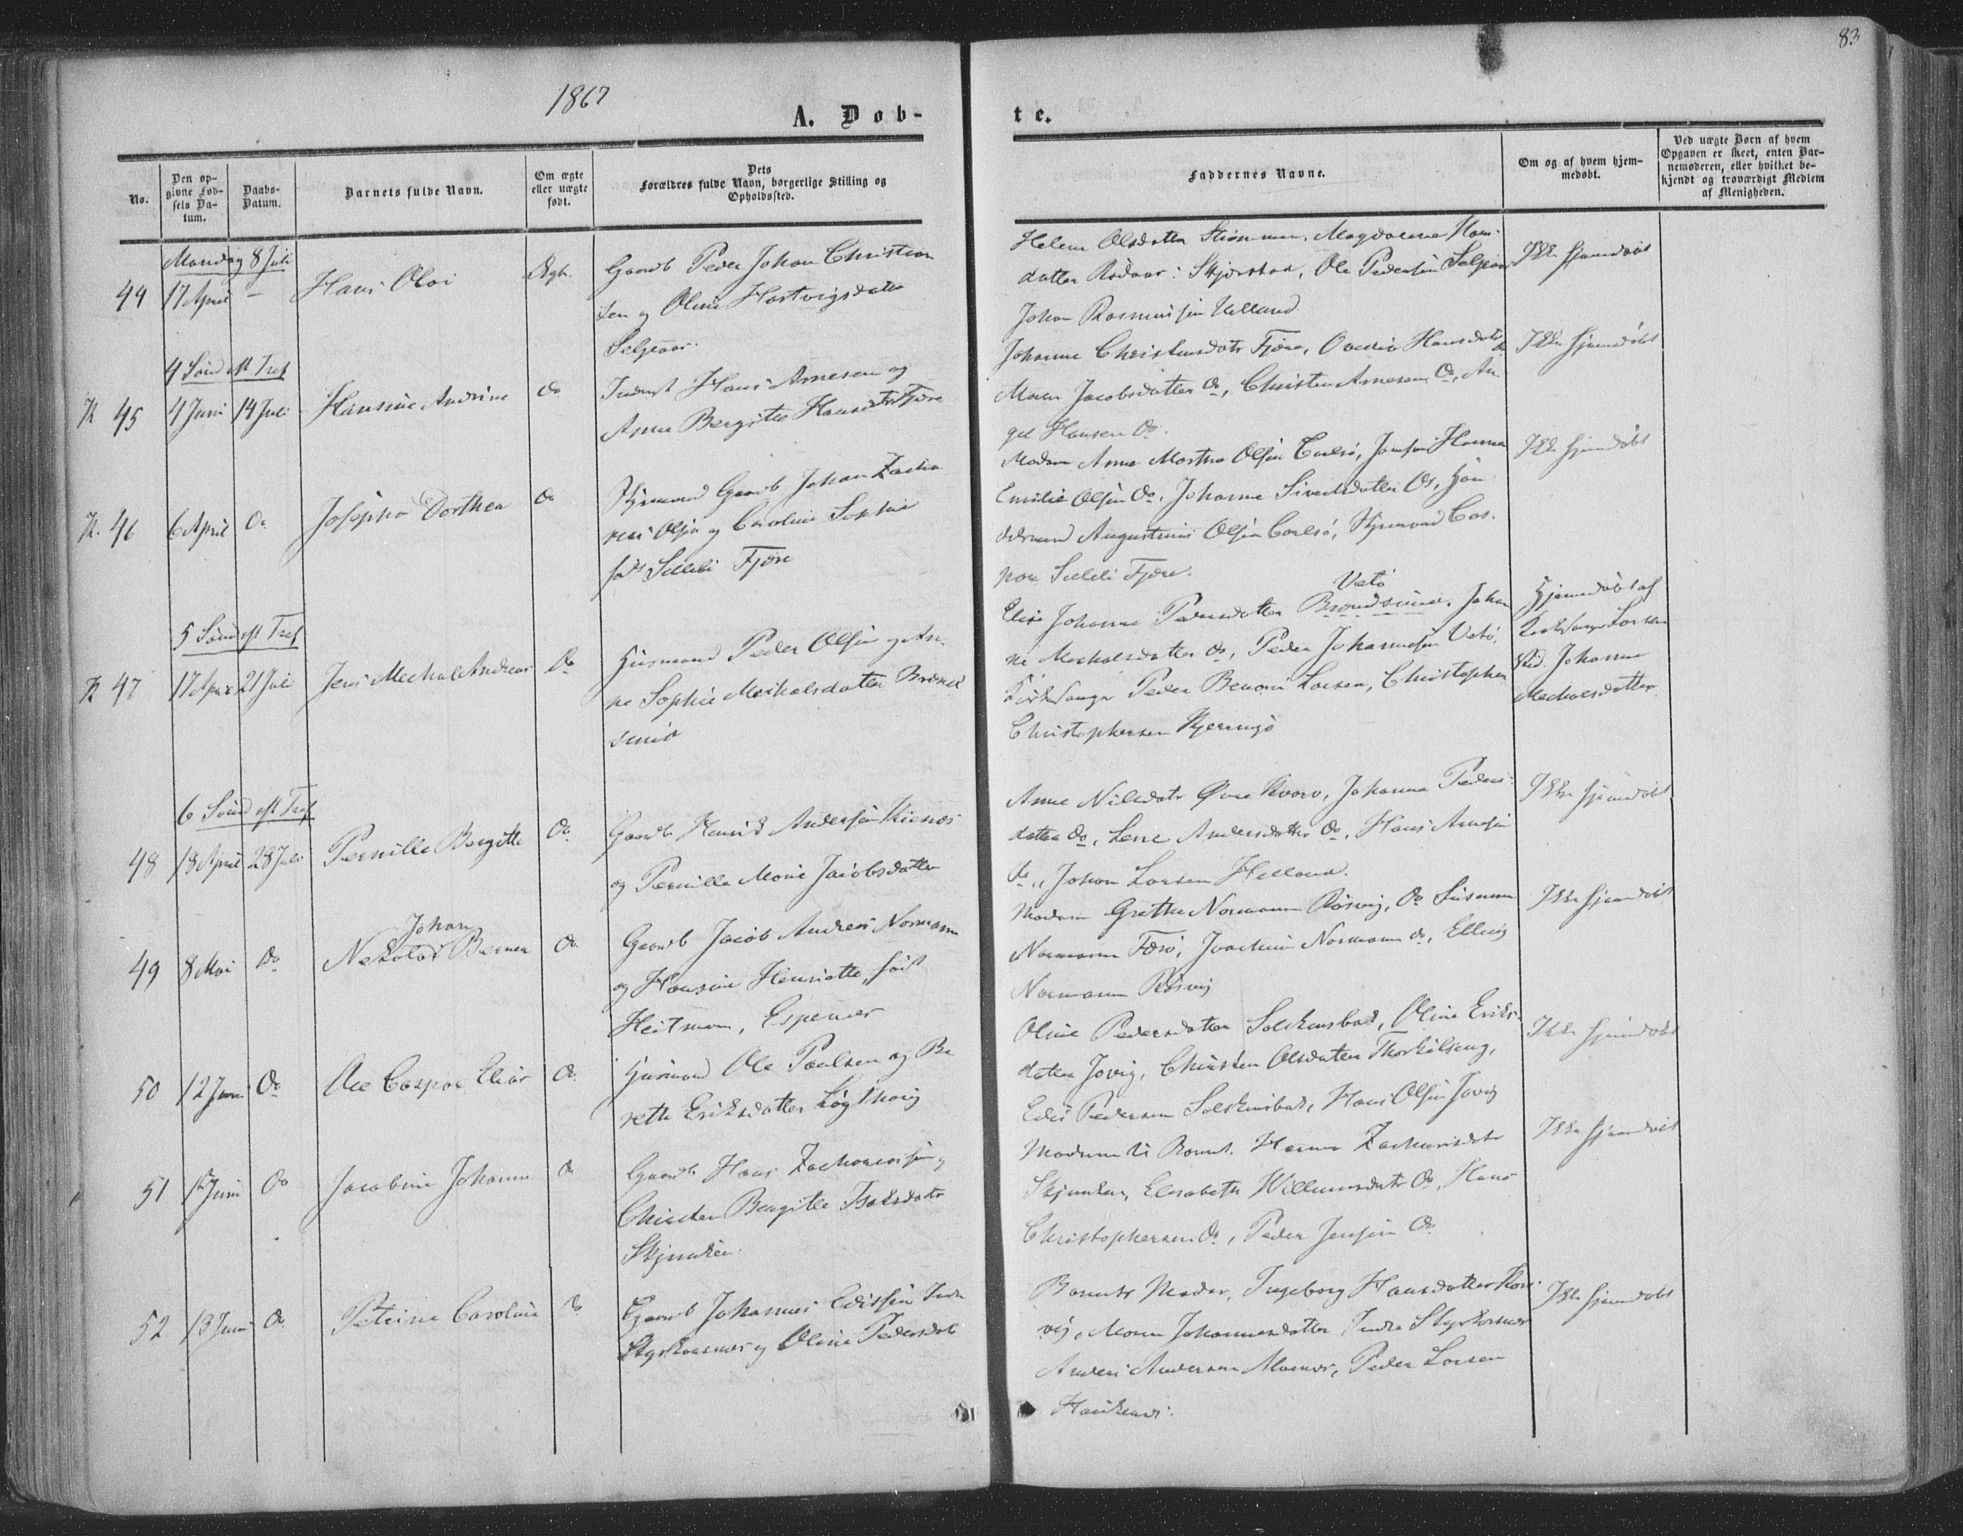 83
1867
A. Døb-
te.
No.
Den op-
givne Fød-
sels Da-
tum.
Daabs-
Datum.
Barnets fulde Navn.
Om ægte
eller uægte
født.
Dets
Forældres fulde Navn, borgerlige Stilling og
Opholdssted.
Faddernes Navne.
Om og af hvem hjem-
medøbt.
Ved uægte Børn af hvem
Opgaven er skeet, enten Bar-
nemoderen, eller hvilket be-
kjendt og troværdigt Medlem
af Menigheden.
Mandag 8 Juli
44 17 April - Hans Olai
Gaardb Peder Johan Christian
sen og Oline Hartvigsdatter
Seljeaar.
Helene Olsdatter Strømmen, Magdalena Hans-
datter Rødaas: Skjerstad, Ole Pedersen
Johan Rasmussen Helland
Ikke hjemdøbt
4 Sønd eft Tref
K 45 4 Juni 14 Juli Hansine Andrine Do
Inderst Hans Arnesen og
Anne Bergitte Hansdatter Fjære
Johanne Christensdatr Fjære, Ovedia Hansdatr Do
Maren Jacobsdatter Do, Christen Arnesen Do, An-
gel Hansen Do.
Ikke hjemdøbt
K. 46 6 April Do Josepha Dorthea Do
Gaardb Johan Zacha
rias Olsen og Caroline Sophie
født Sellei Fjære
Madam Anne Martha Olsen Carlsø, Hanna
Emilie Olsen Do, Johanna Sivertsdatter Do, Han
delsmand Augustinus Olsen Carlsø, Cas-
par Fjære.
Ikke hjemdøbt
5 Sønd eft Tref
K 47 17 April 21 Juli Jens Mechal Andreas Do
Husmand Peder Olsen og An-
ne Sophie Mechalsdatter Brønd
sund
Vatø
Elise Johanne Pedersdatter Brøndsund, Johan
ne Mechalsdatter Do, Peder Johannesen Vatø,
Kirkesanger Peder Benoni Larsen, Christopher
Christophersen Kjerringø
Hjemdøbt af
Kirkesanger Larsen
Johanna
Mechalsdatter.
6 Sønd eft Tref
48 18 April 28 Juli Pernille Bergitte Do
Gaardb Henrik Andersen
og Pernille Marie Jacobsdatter
Anne Nilsdatr Øvre Kvarv, Johanna Peders-
datter Do, Lene Andersdatter Do, Hans Arnesen
Do, Johan Larsen Helland.
Ikke hjemdøbt
Johan
49 8 Mai Do Nekolai Berner Do
Gaardb Jacob Andreas Normann
og Hansine Henriette, født
Heitman, Espenæs
Madam Grethe Normann Røsvig, Do Susanne
Normann Færø, Joachim Normann Do, Elling
Normann Røsvig
Ikke hjemdøbt
50 12 Juni Do Ole Caspar Eliar Do
Husmand Ole Paulsen og Be
rethe Eriksdatter Løgthavig
Oline Pedersdatter Solskensbad, Oline Eriks-
datter Jøvig, Christen Olsdatter Thorkilseng,
Edis Pedersen Solskensbad, Hans Olsen Jøvig
Ikke hjemdøbt
51 Juni Do Jacobine Johanne Do
Gaardb Hans Zachariassen og
Christen Bergitte Isaksdatr
Skjendsen.
Moderen til Barnet. Hanna Zachariasdatr
Elisabeth Willumsdatr Do, Hans
Christophersen Do, Peder Jensen Do
Ikke hjemdøbt
52 13 Juni Do Petrine Caroline Do
Gaardb Johannes Edissen Indre
og Oline Pedersdatr
Barnets Moder, Ingeborg Hansdatter Røs-
vig, Maren Johannesdatter Indre
Anders Andersen, Peder Larsen
Ikke hjemdøbt